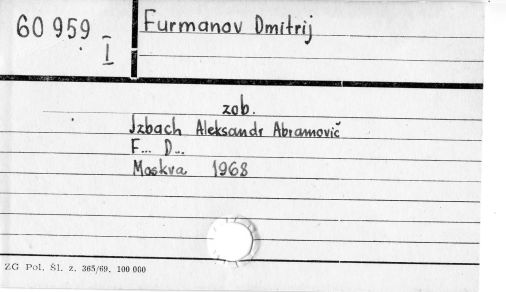 60 959
I
Furmanov Dmitrij
zob.
Izbach Aleksandr Abramovič
F... D...
Moskva 1968
ZG Pol. Śl. z. 365/69. 100 000